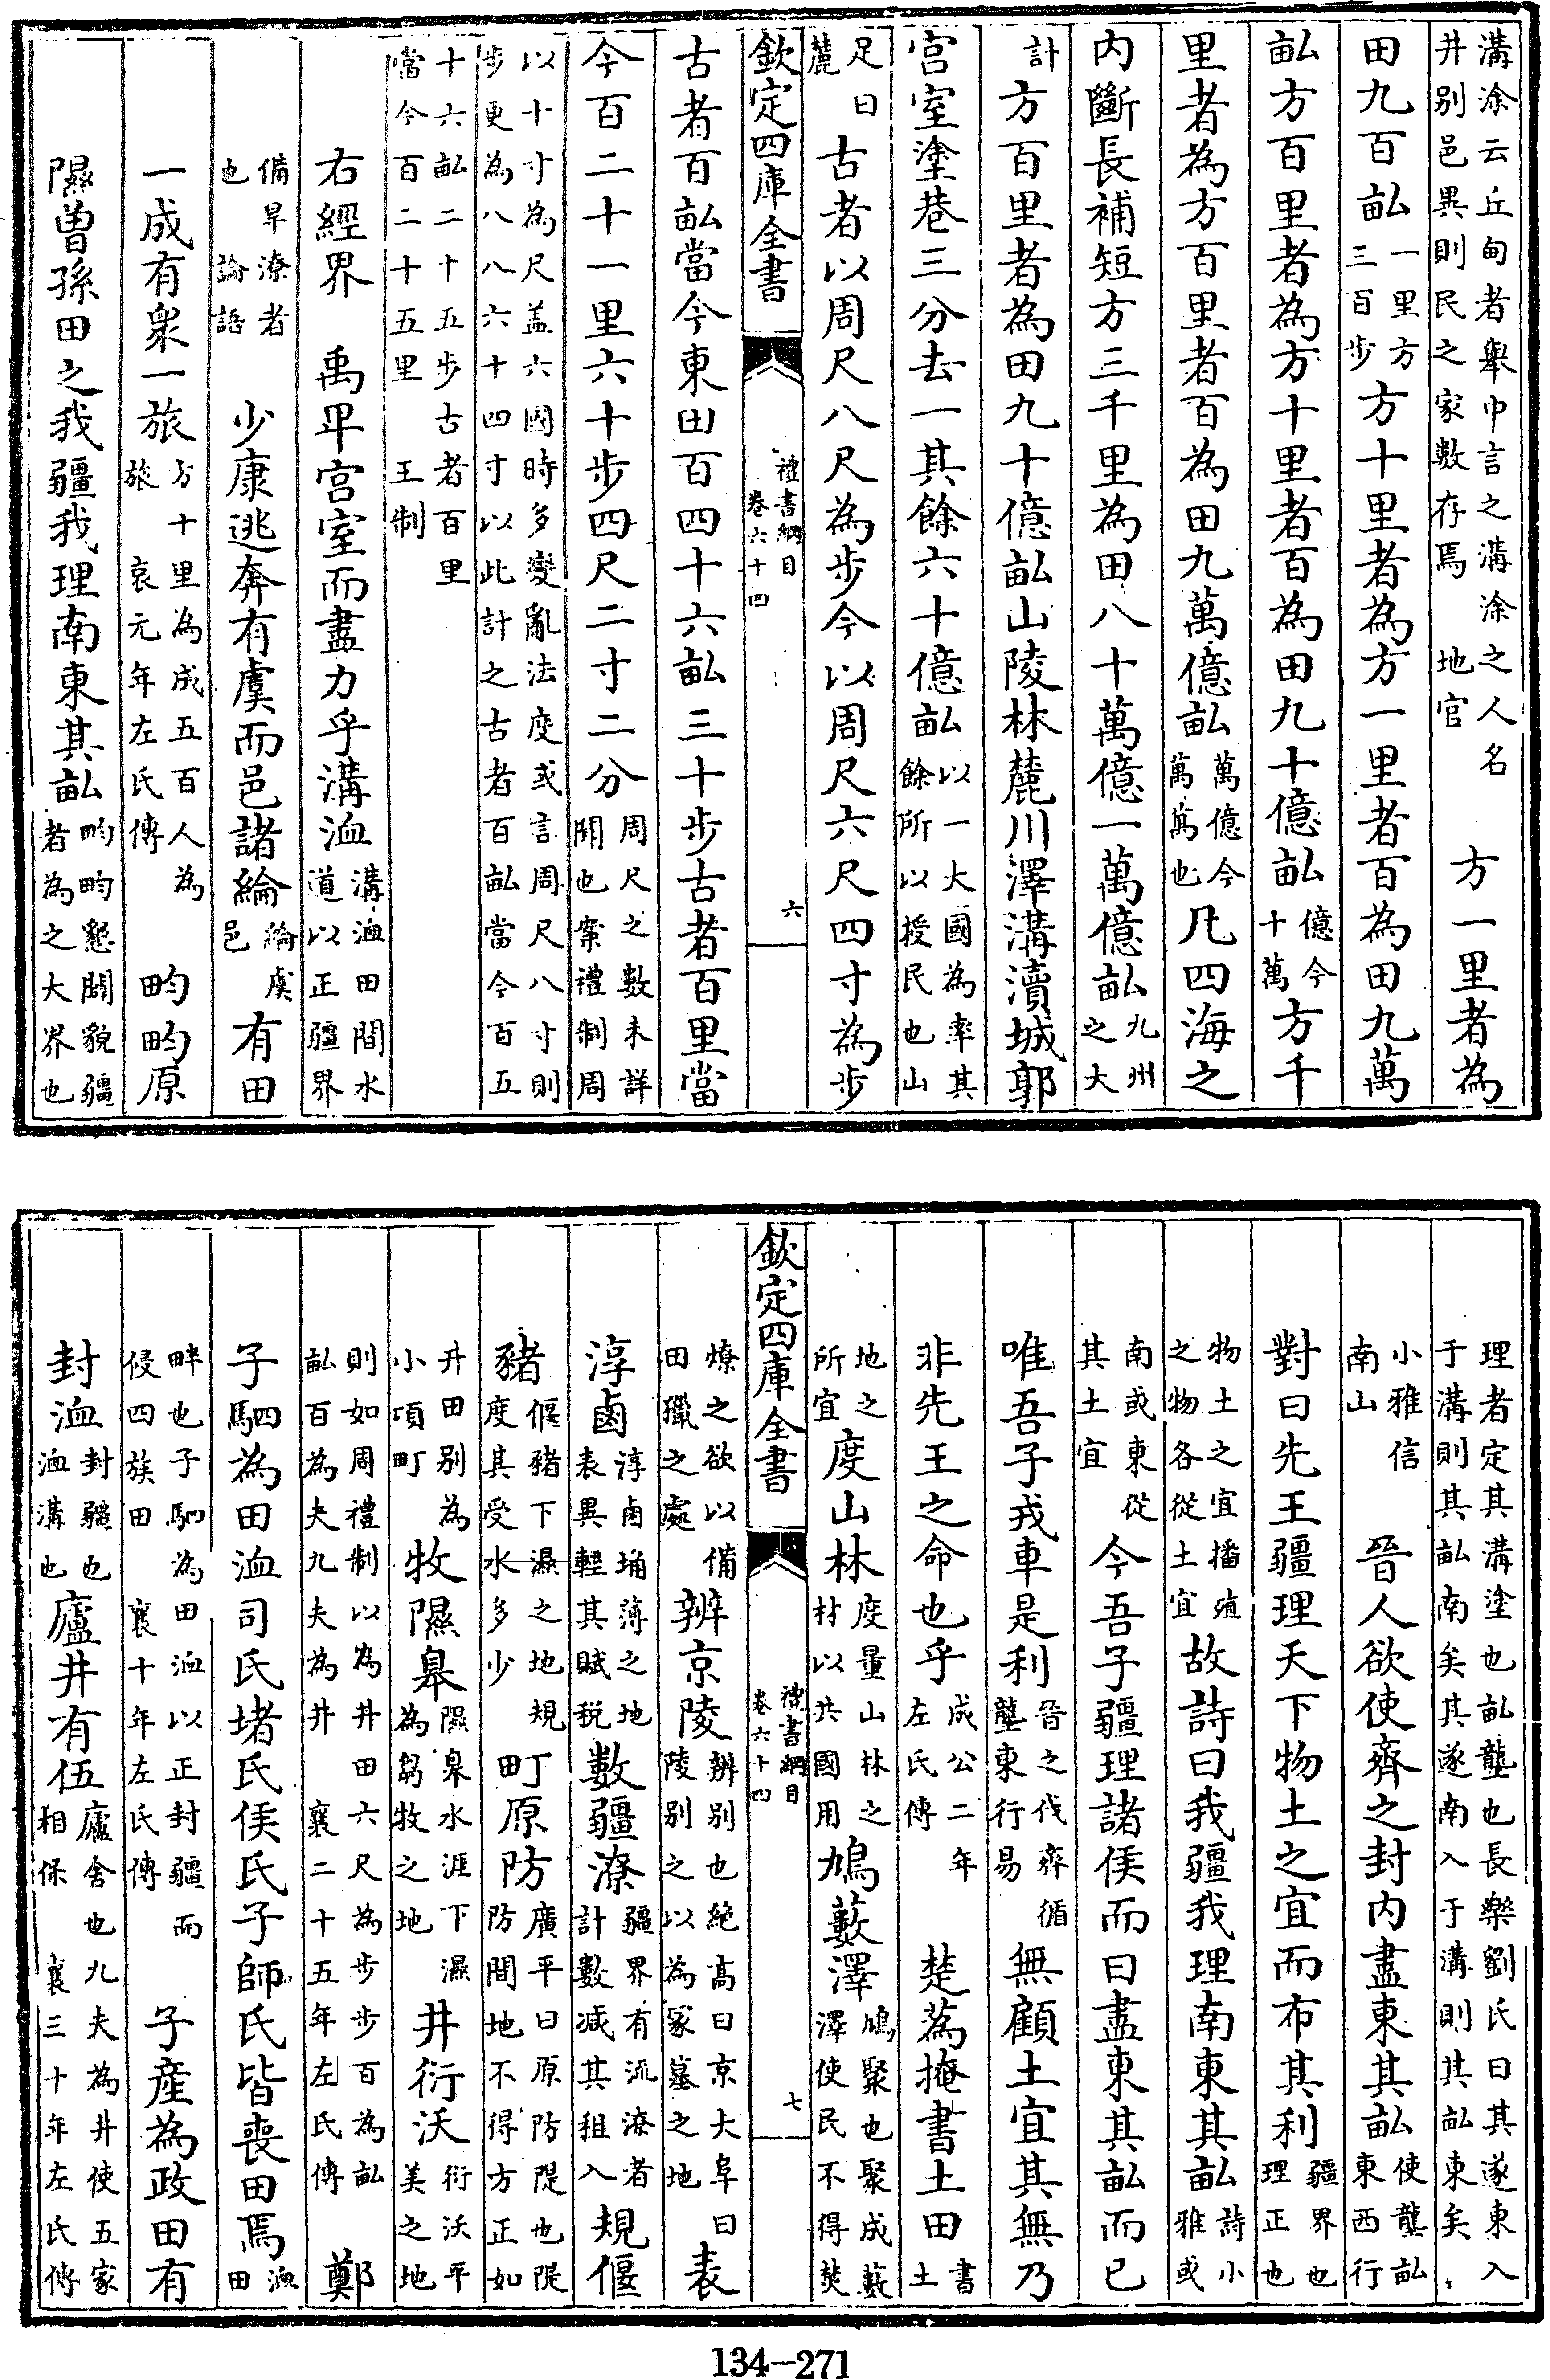 溝涂云丘甸者舉巾言之溝涂之人名井别邑異則民之家數存焉 地官 方一里者為
田九百畝一里方三百步方十里者為方一里者百為田九萬
畝方百里者為方十里者百為田九十億畝億今十萬方千
里者為方百里者百為田九萬億畝萬億今萬萬也凡四海之
内斷長補短方三千里為田八十萬億一萬億畝九州之大
計方百里者為田九十億畝山陵林麓川澤溝瀆城郭
宫室塗巷三分去一其餘六十億畝以一大國為率其餘所以授民也山
足曰麓古者以周尺八尺為步今以周尺六尺四寸為步
欽定四庫全書 禮書綱目 卷六十四 六
古者百畝當今東田百四十六畝三十步古者百里當
今百二十一里六十步四尺二寸二分周尺之數未詳聞也案禮制周
以十寸為尺盖六國時多變亂法度或言周尺八寸則步更為八八六十四寸以此計之古者百畝當今百五
十六畝二十五步古者百里當今百二十五里 王制
右經界 禹平宫室而盡力乎溝洫溝洫田間水道以正疆界
備旱潦者也 論語 少康逃奔有虞而邑諸綸綸虞邑有田
一成有衆一旅方十里為成五百人為旅 哀元年左氏傳 畇畇原
隰曽孫田之我疆我理南東其畝畇畇懇闢貌疆者為之大界也
理者定其溝塗也畝壟也長樂劉氏曰其遂東入于溝則其畝南矣其遂南入于溝則其畝東矣
小雅信南山 晉人欲使齊之封内盡東其畝使壟畝東西行
對曰先王疆理天下物土之宜而布其利疆界也理正也
物土之宜播殖之物各從土宜故詩曰我疆我理南東其畝詩小雅或
南或東從其土宜今吾子疆理諸侯而曰盡東其畝而已
唯吾子戎車是利晉之伐齊循壟東行易無顧土宜其無乃
非先王之命也乎成公二年左氏傳 楚蒍掩書土田書土
地之所宜度山林度量山林之材以共國用鳩藪澤鳩聚也聚成藪澤使民不得焚
欽定四庫全書 禮書綱目 卷六十四 七
燎之欲以備田獵之處辨京陵辨别也絶高曰京大阜曰陵别之以為冢墓之地表
淳鹵淳鹵埆薄之地表異輕其賦税數疆潦疆界有流潦者計數減其租入規偃
豬偃豬下濕之地規度其受水多少町原防廣平曰原防隄也隄防間地不得方正如
井田别為小頃町牧隰皋隰皋水涯下濕為芻牧之地井衍沃衍沃平美之地
則如周禮制以為井田六尺為步步百為畝畝百為夫九夫為井 襄二十五年左氏傳 鄭
子駟為田洫司氏堵氏侯氏子師氏皆喪田焉洫田
畔也子駟為田洫以正封疆而侵四族田 襄十年左氏傳 子産為政田有
封洫封疆也洫溝也廬井有伍廬舍也九夫為井使五家相保 襄三十年左氏傳
134-271